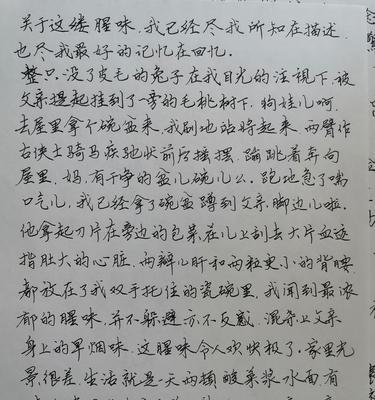 关于这缕腥味,我已经尽我所知在描述,
也尽我最好的记忆在回忆.
整只.没了皮毛的兔子在我目光的注視下,被
父亲提起挂到了一旁的毛桃树下.狗娃儿啊,
去屋里拿个碗盆来,我剐地站将起来,两臂作
古侠士骑马疾驰状前后摇摆.蹦跳着奔向
屋里.妈,有干净的盆儿碗儿么.跑地急了喘
口气儿,我已经拿了碗盆蹲到父亲脚边儿啦.
他拿起刀片在旁边的包菜在儿上刮去大片血迹
指肚大的心脏.两瓣儿肝和两粒更小的背腰
都放在了我双手托住的瓷碗里.我闻到最浓
郁的腥味,并不躲避亦不反感.混杂上父亲
身上的旱烟味.这腥味令人欢快极了.家里光
景很差.生活就是一天两顿酸菜浆水面.有